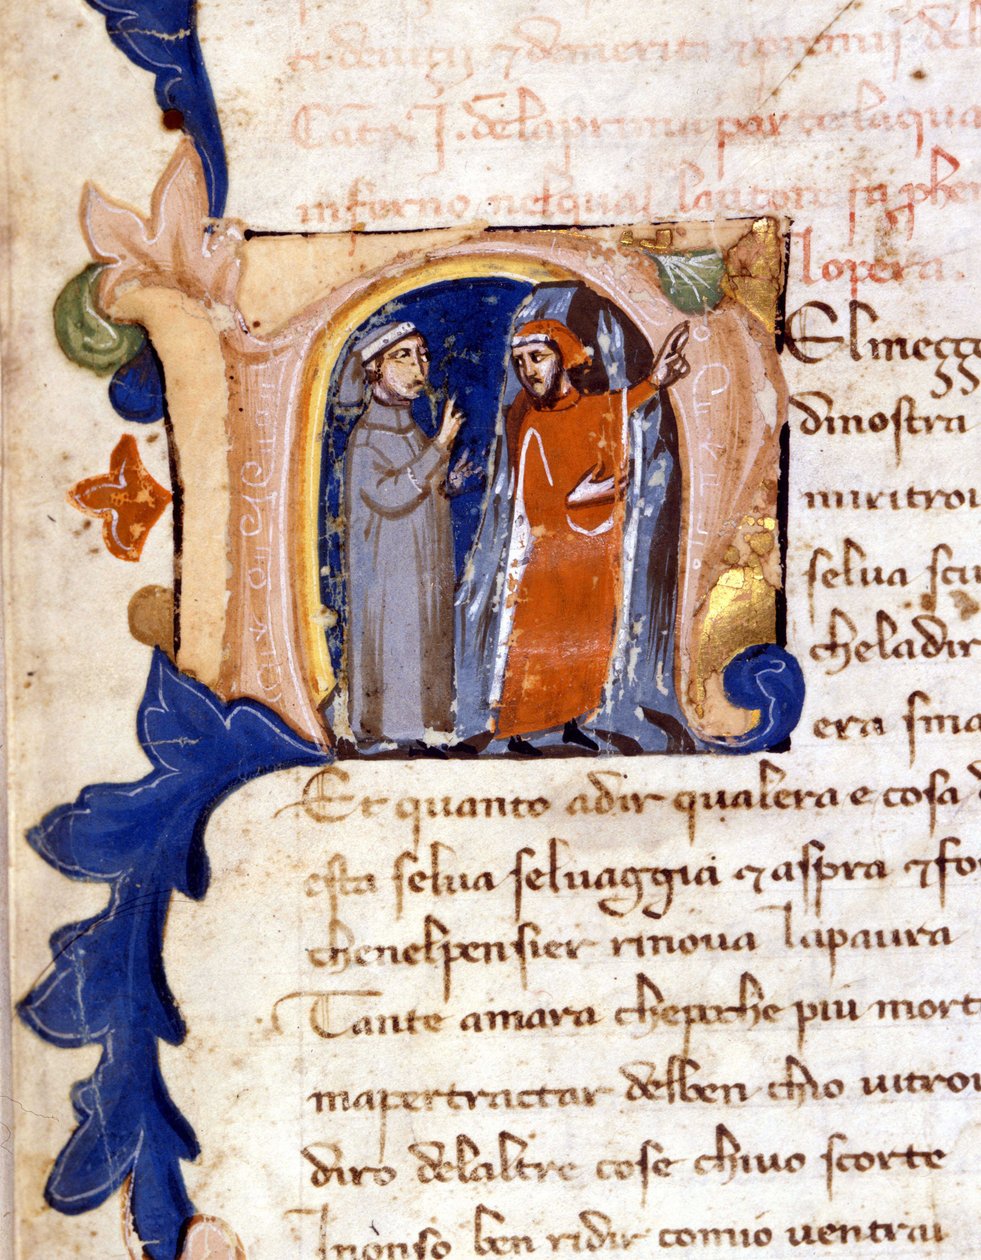 et demerito
Cato. J. dela prima parte laqua
inferno nelqual lautore
lopera.
El megg
di nostra
mi ritrou
selua scu
che la dir
era sma
Et quanto a dir qual era e cosa d
esta selua seluaggia ⁊ asspra ⁊ fo
che nel pensier rinoua la paura
Tante amara che poche piu mort
ma per tractar del ben chio ui trou
diro delaltre cose chiuo scorte
Jnonso ben ridir comio uentrai